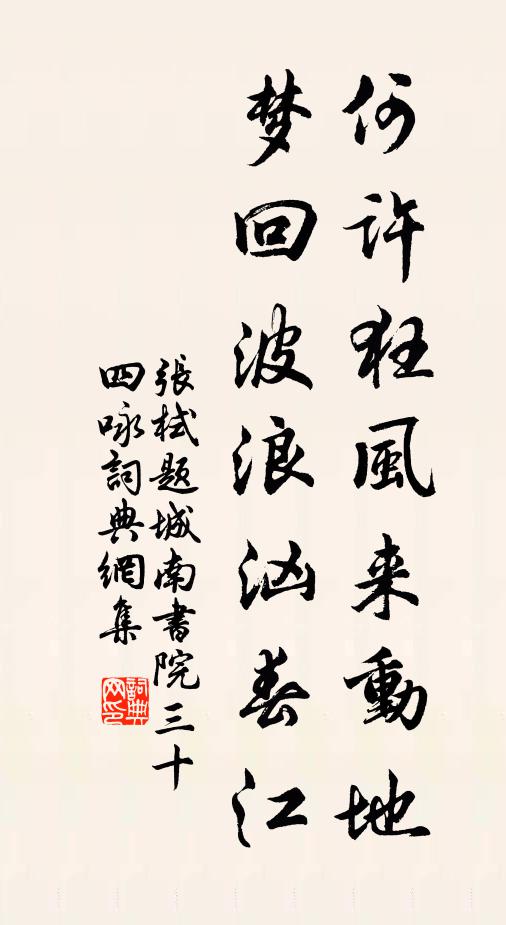 何许狂風来動地
梦回波浪汹春江
張栻题城南書院三十
四咏詞典網集
詞典
网印